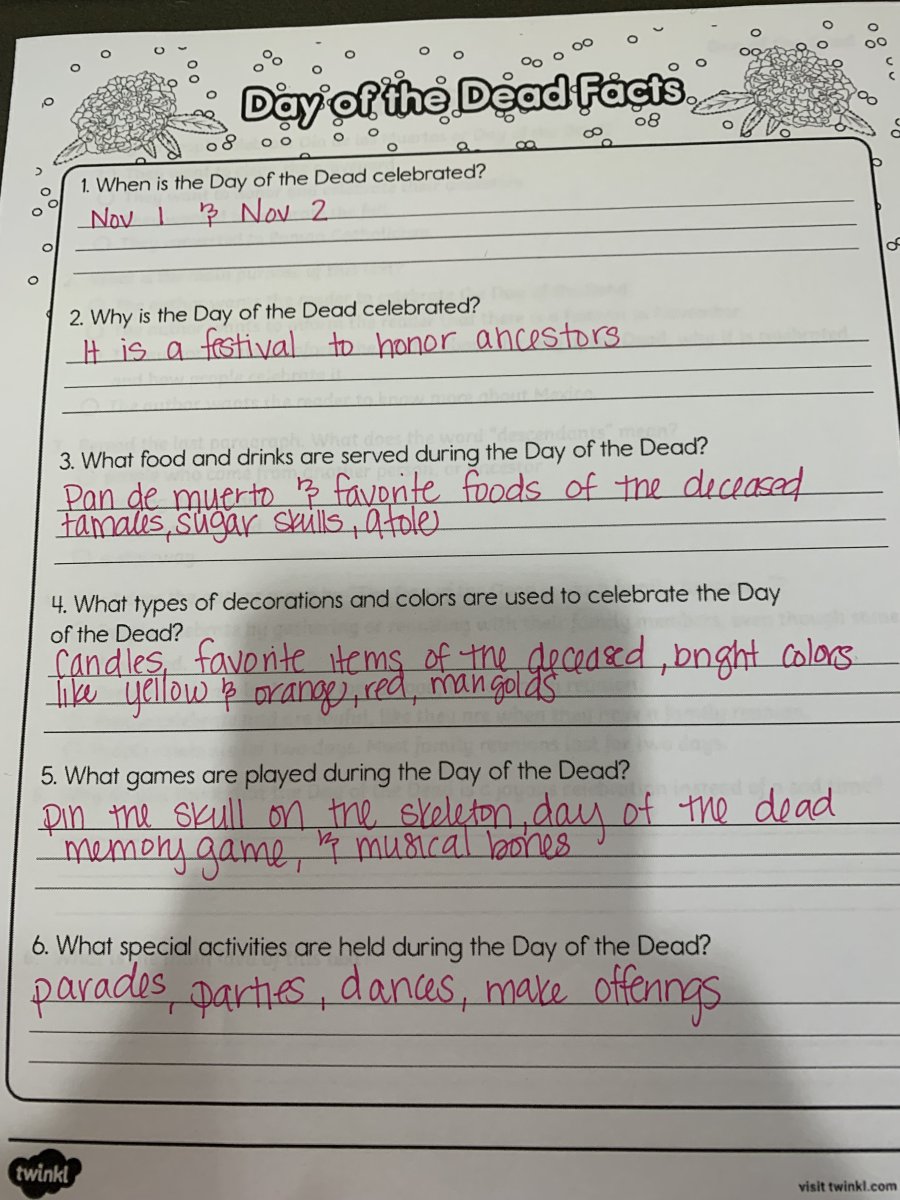 Day of the Dead Facts
1. When is the Day of the Dead celebrated?
Nov 1 & Nov 2
2. Why is the Day of the Dead celebrated?
It is a festival to honor ancestors
3. What food and drinks are served during the Day of the Dead?
Pan de muerto & favorite foods of the deceased
tamales, sugar skulls, atole
4. What types of decorations and colors are used to celebrate the Day
of the Dead?
Candles, favorite items of the deceased, bright colors
like yellow & orange, red, marigolds
5. What games are played during the Day of the Dead?
pin the skull on the skeleton, day of the dead
memory game, & musical bones
6. What special activities are held during the Day of the Dead?
parades, parties, dances, make offerings
twinkl
visit twinkl.com